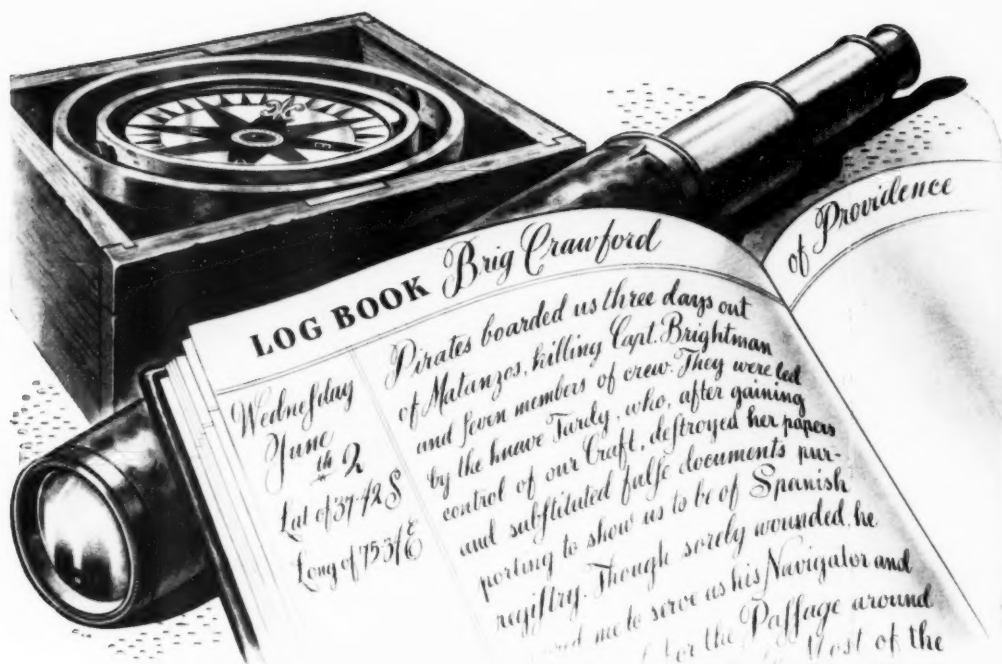 LOG BOOK Brig Crawford
of Providence
Wedneſday
June
th 2
Lat of 37-42 S
Long of
Pirates boarded us three days out
of Matanzos, killing Capt. Brightman
and ſeven members of crew. They were led
by the knave Tardy, who, after gaining
control of our Craft, deſtroyed her papers
and subſtituted falſe documents pur-
porting to show us to be of Spanish
regiſtry. Though sorely wounded, he
me to serve as his Navigator and
for the Paſſage around
Most of the